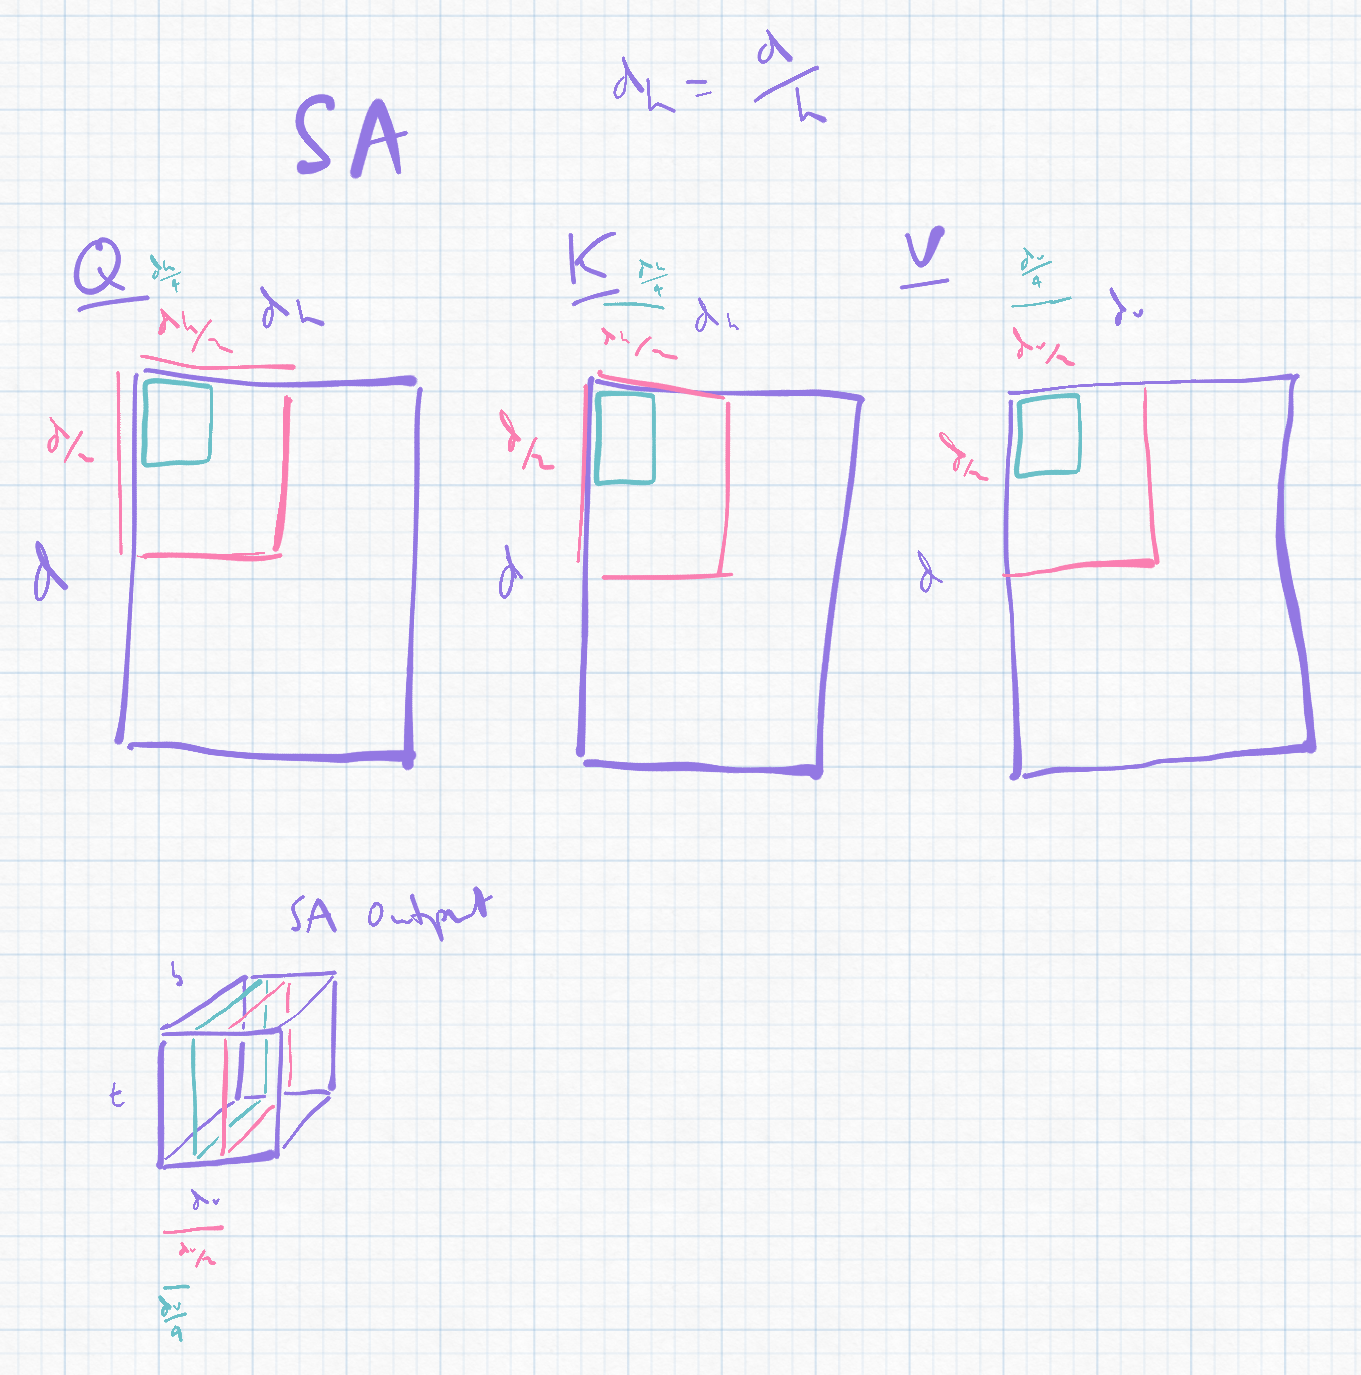 SA
d_h = d/h
Q
d_h/4
d_h/2
d_h
d/2
d
K
d_h/4
d_h/2
d_h
d/2
d
V
d_v/4
d_v/2
d_v
d/2
d
SA Output
b
t
d_v
d_v/2
d_v/4